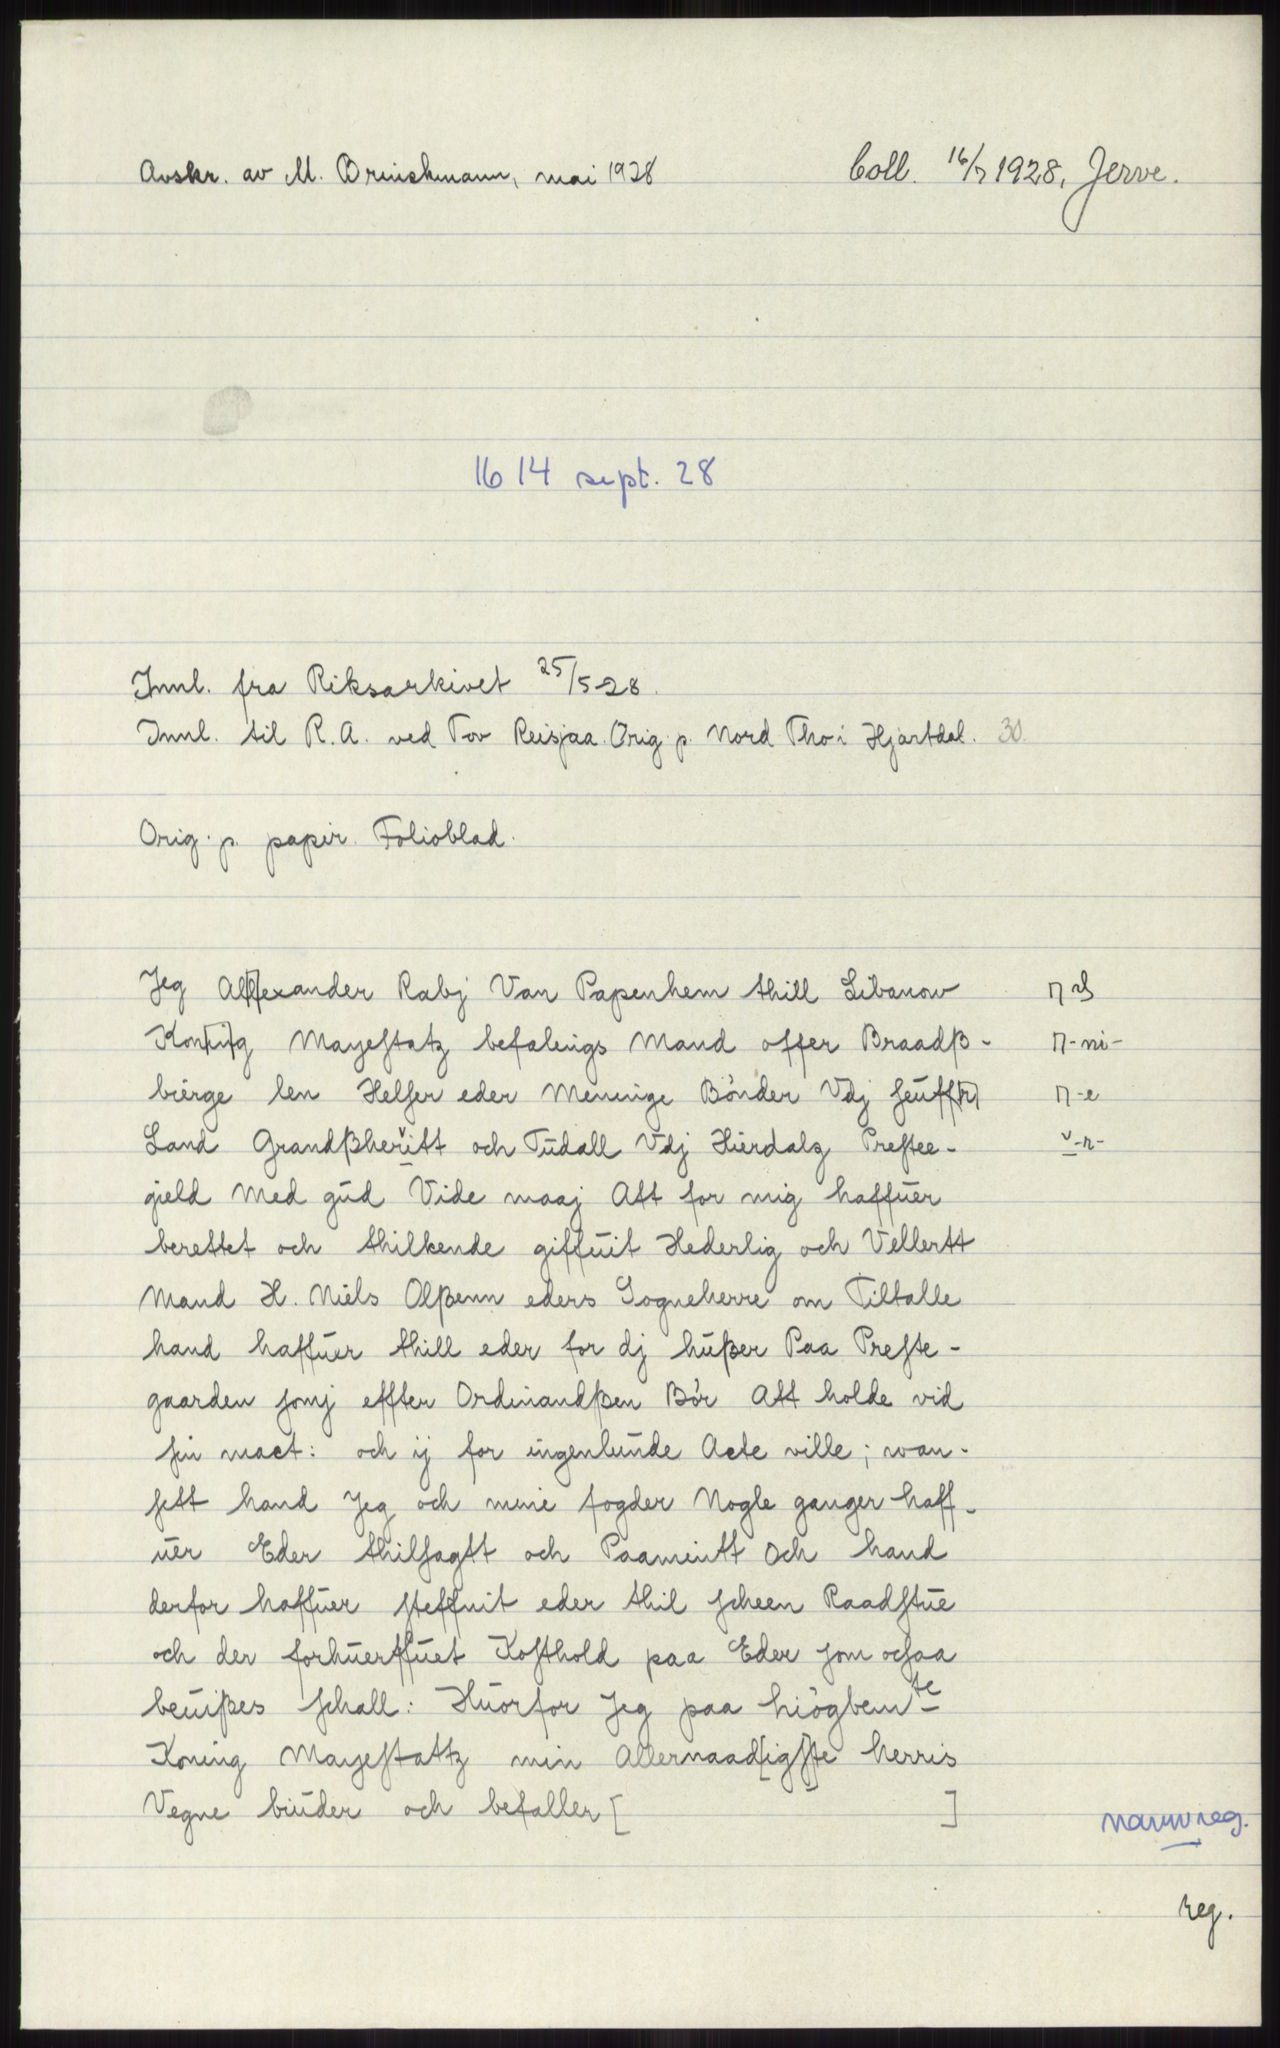 Avskr. av M. Brinchmann, mai 1928
Coll. 16/7 1928, Jerve.
1614 sept. 28
Innl. fra Riksarkivet 25/5-28.
Innl. til R.A. ved Tov Reisjaa. Orig. p. Nord Tho i Hjartdal. 30.
Orig. p. papir. Folioblad.
Jeg Al[l]exander Rabj Van Papenhem thill Libanow
Kon[ni]g Mayestatz befalings Mand offer Braadß-
bierge len Helser eder Meninge Bönder Vdj seuff[e]
Land Grandßherritt och Tudall Vdj Hierdalz Prestee-
gield Med gud Vide maaj Att for mig haffuer
berettet och thilkende giffuit Hederlig och Vellertt
Mand H. Niels Olßenn eders Sogneherre om Tiltalle
hand haffuer thill eder for dj hußer Paa Preste-
gaarden somj effter Ordinandßen Bör Att holde vid
sin mact: och ij for ingenlunde Acte ville; wan-
sett hand Jeg och mine fogder Nogle ganger haff-
uer Eder thilsagtt och Paamintt och hand
derfor haffuer steffnit eder thil scheen Raadstue
och der forhuerffuet Kosthold paa Eder som ochsaa
beuißes schall: Huorfor Jeg paa hiögbemte
Koning Mayestattz min Allernaad[igs]te herris
Vegne biuder och befaller [ ]
⊓-ni-
⊓-e
v-r-
navnreg.
reg.